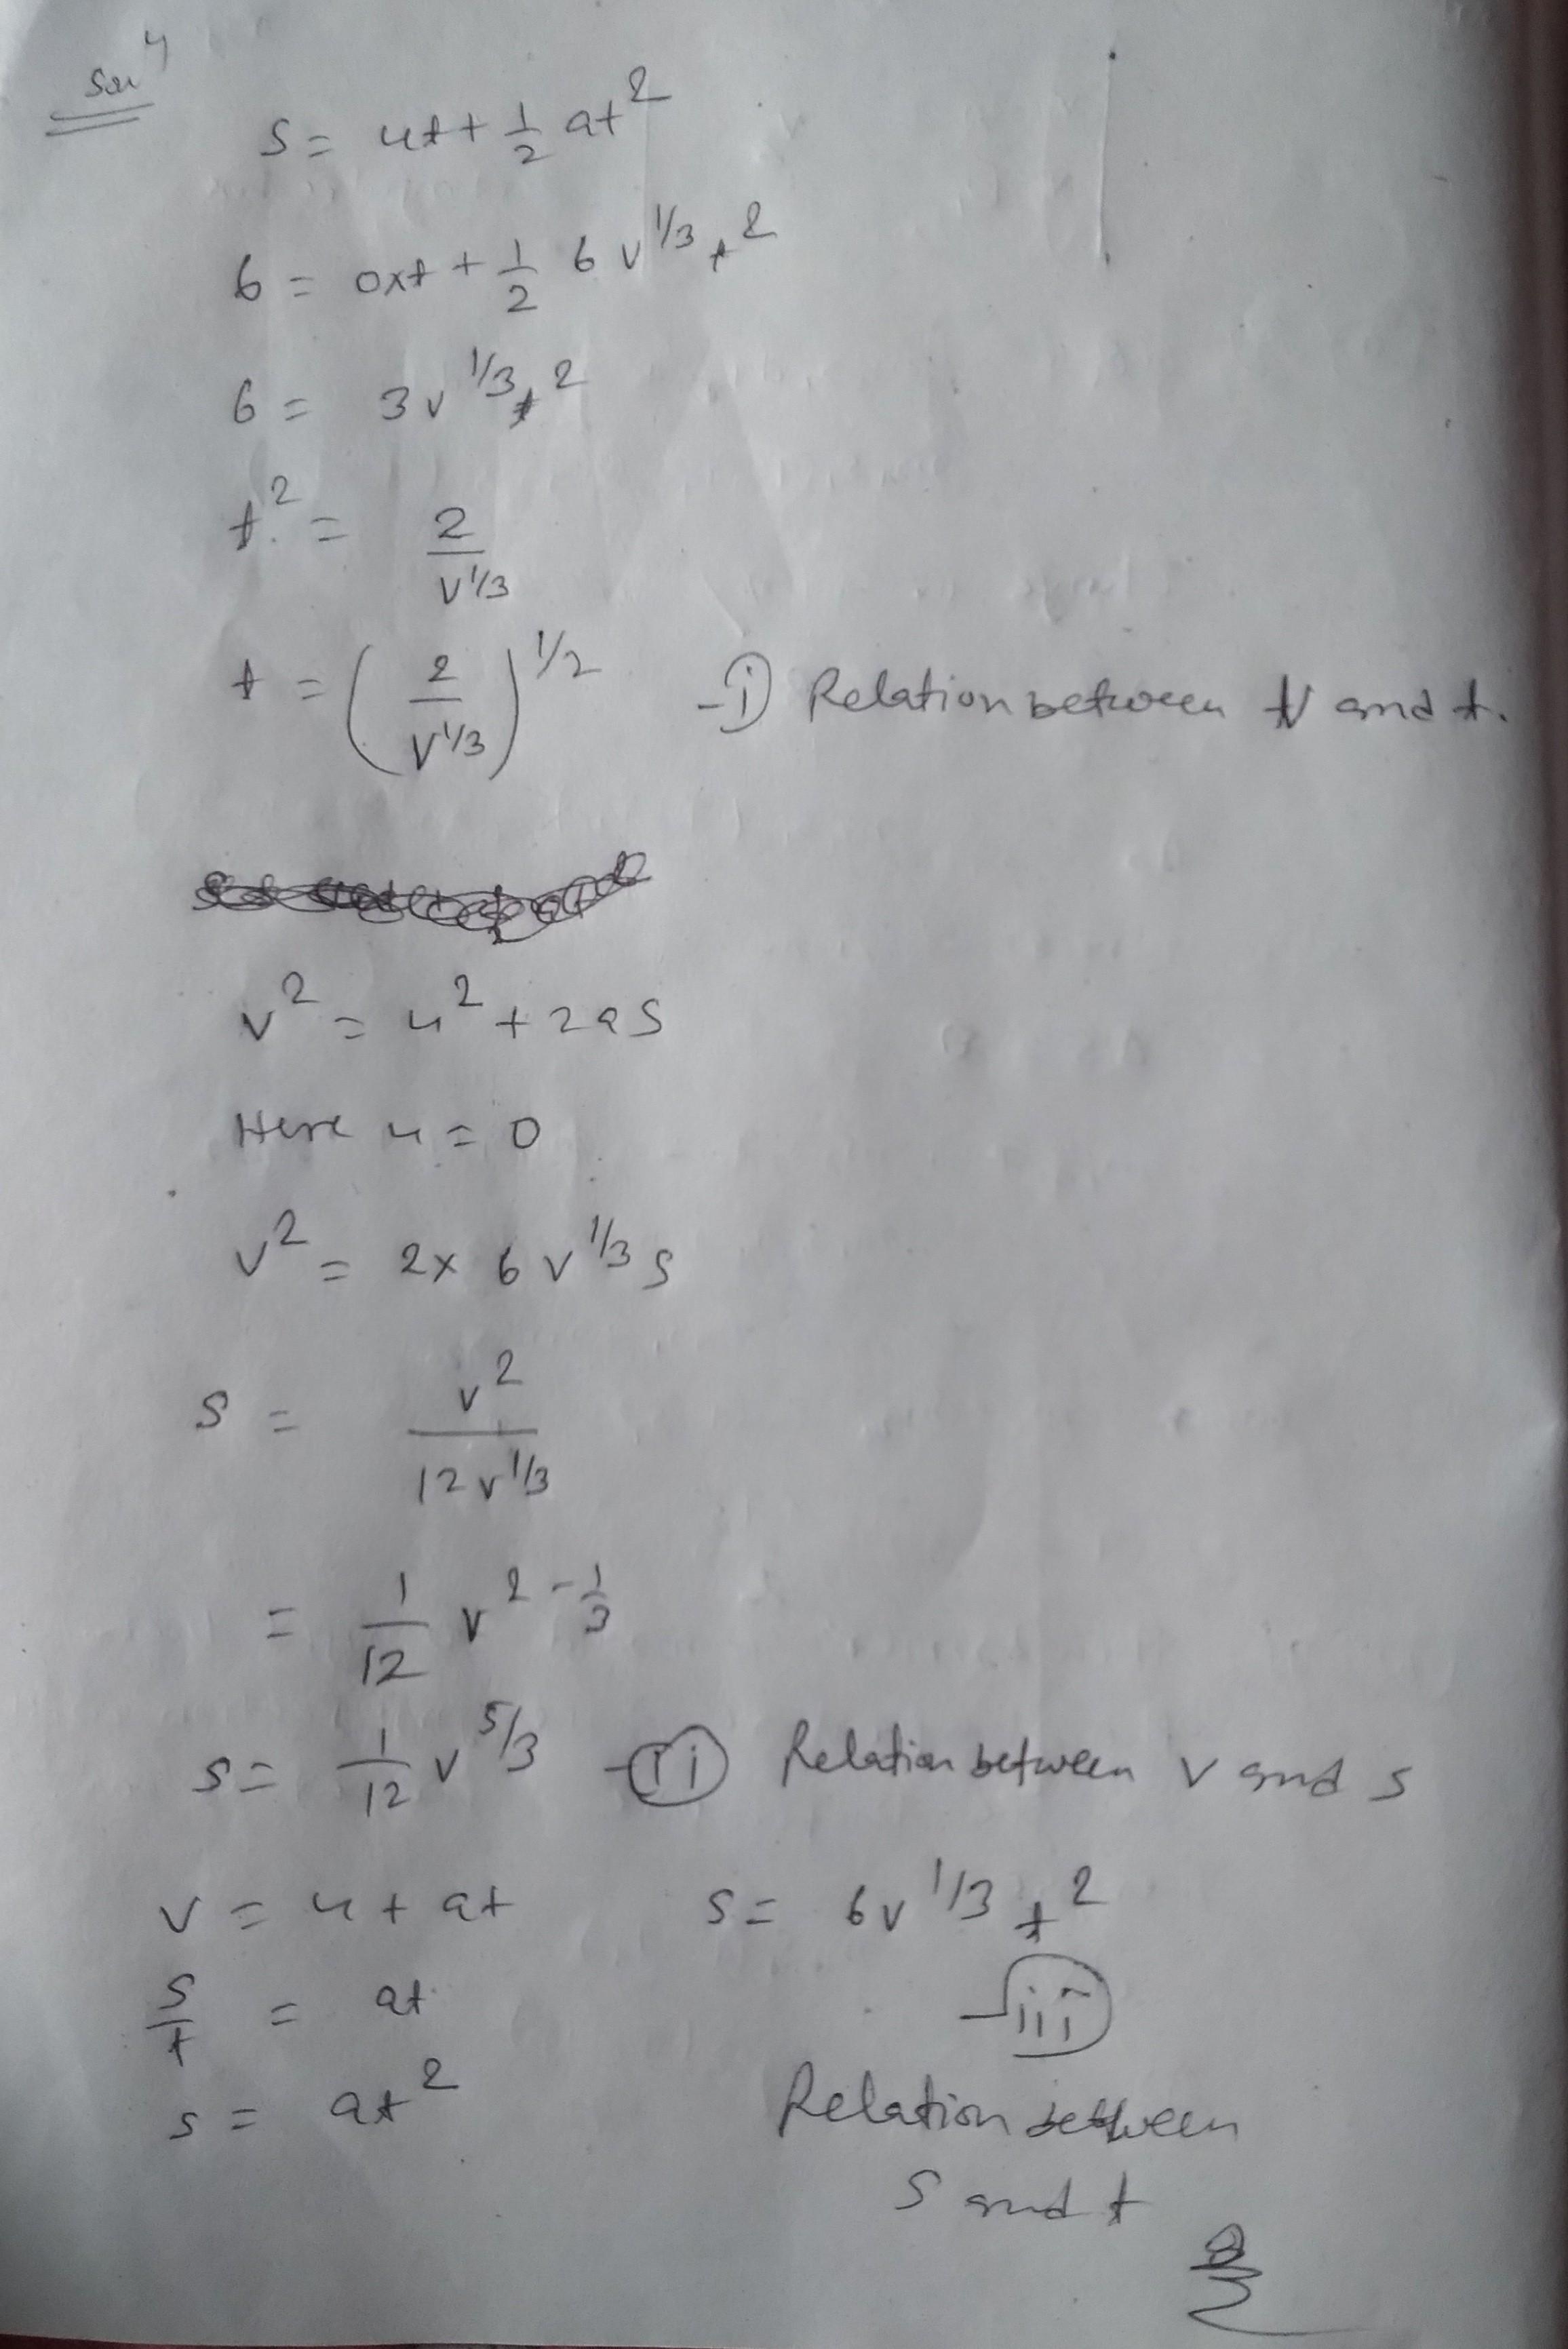 Sol⁴
s = ut + 1/2 at²
6 = 0×t + 1/2 6 v^1/3 t²
6 = 3v^1/3 t²
t² = 2/v^1/3
t = (2/v^1/3)^1/2 -(i) Relation between v and t.
v² = u² + 2as
Here u = 0
v² = 2× 6 v^1/3 s
s = v²/12v^1/3
= 1/12 v^2-1/3
s = 1/12 v^5/3 -(ii) Relation between v and s
v = u + at s = 6v^1/3 t²
s/t = at -(iii)
s = at² Relation between
s and t